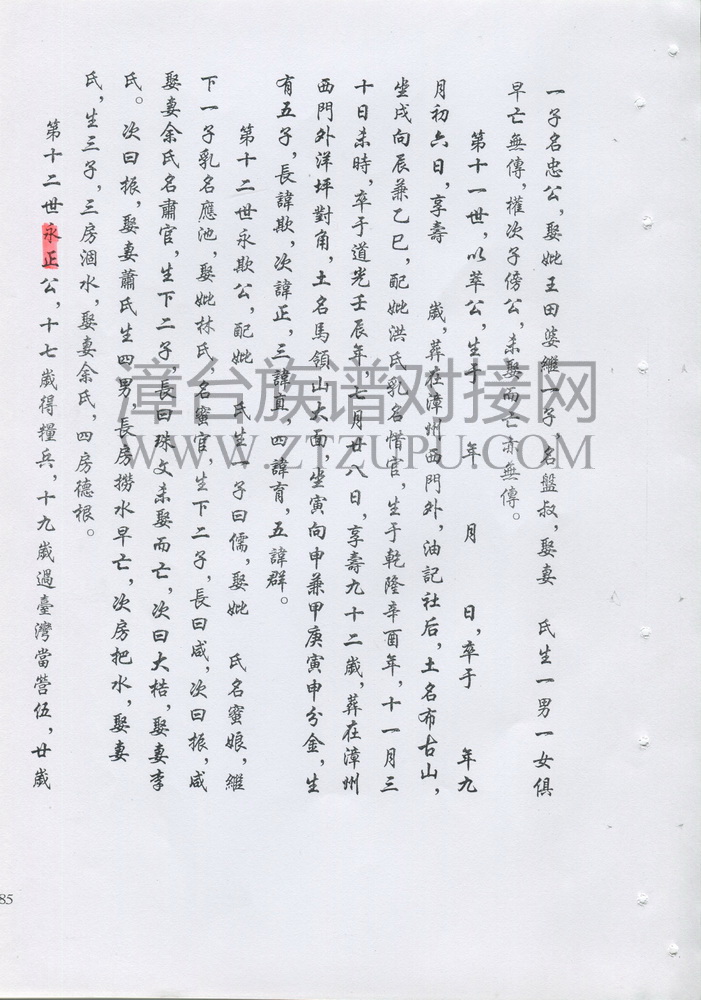 一子名忠公，娶妣王田婆繼一子，名盤叔，娶妻　氏生一男一女俱
早亡無傳，權次子傍公，未娶而亡亦無傳。
第十一世，以萃公，生于　年　月　日，卒于　年九
月初六日，享壽　歲，葬在漳州西門外，油記社后，土名布古山，
坐戌向辰兼乙巳，配妣洪氏乳名惜官，生于乾隆辛酉年，十一月三
十日未時，卒于道光壬辰年，七月廿八日，享壽九十二歲，葬在漳州
西門外洋坪對角，土名馬領山大面，坐寅向申兼甲庚寅申分金，生
有五子，長諱欺，次諱正，三諱真，四諱育，五諱群。
第十二世永欺公，配妣　氏生一子曰儒，娶妣　氏名蜜娘，繼
下一子乳名應池，娶妣林氏，名蜜官，生下二子，長曰咸，次曰振，咸
娶妻余氏名肅官，生下二子，長曰珠文未娶而亡，次曰大梏，娶妻李
氏。次曰振，娶妻蕭氏生四男，長房撈水早亡，次房把水，娶妻
氏，生三子，三房涸水，娶妻余氏，四房德根。
第十二世永正公，十七歲得糧兵，十九歲過臺灣當營伍，廿歲
85
漳台族谱对接网
WWW.ZTZUPU.COM